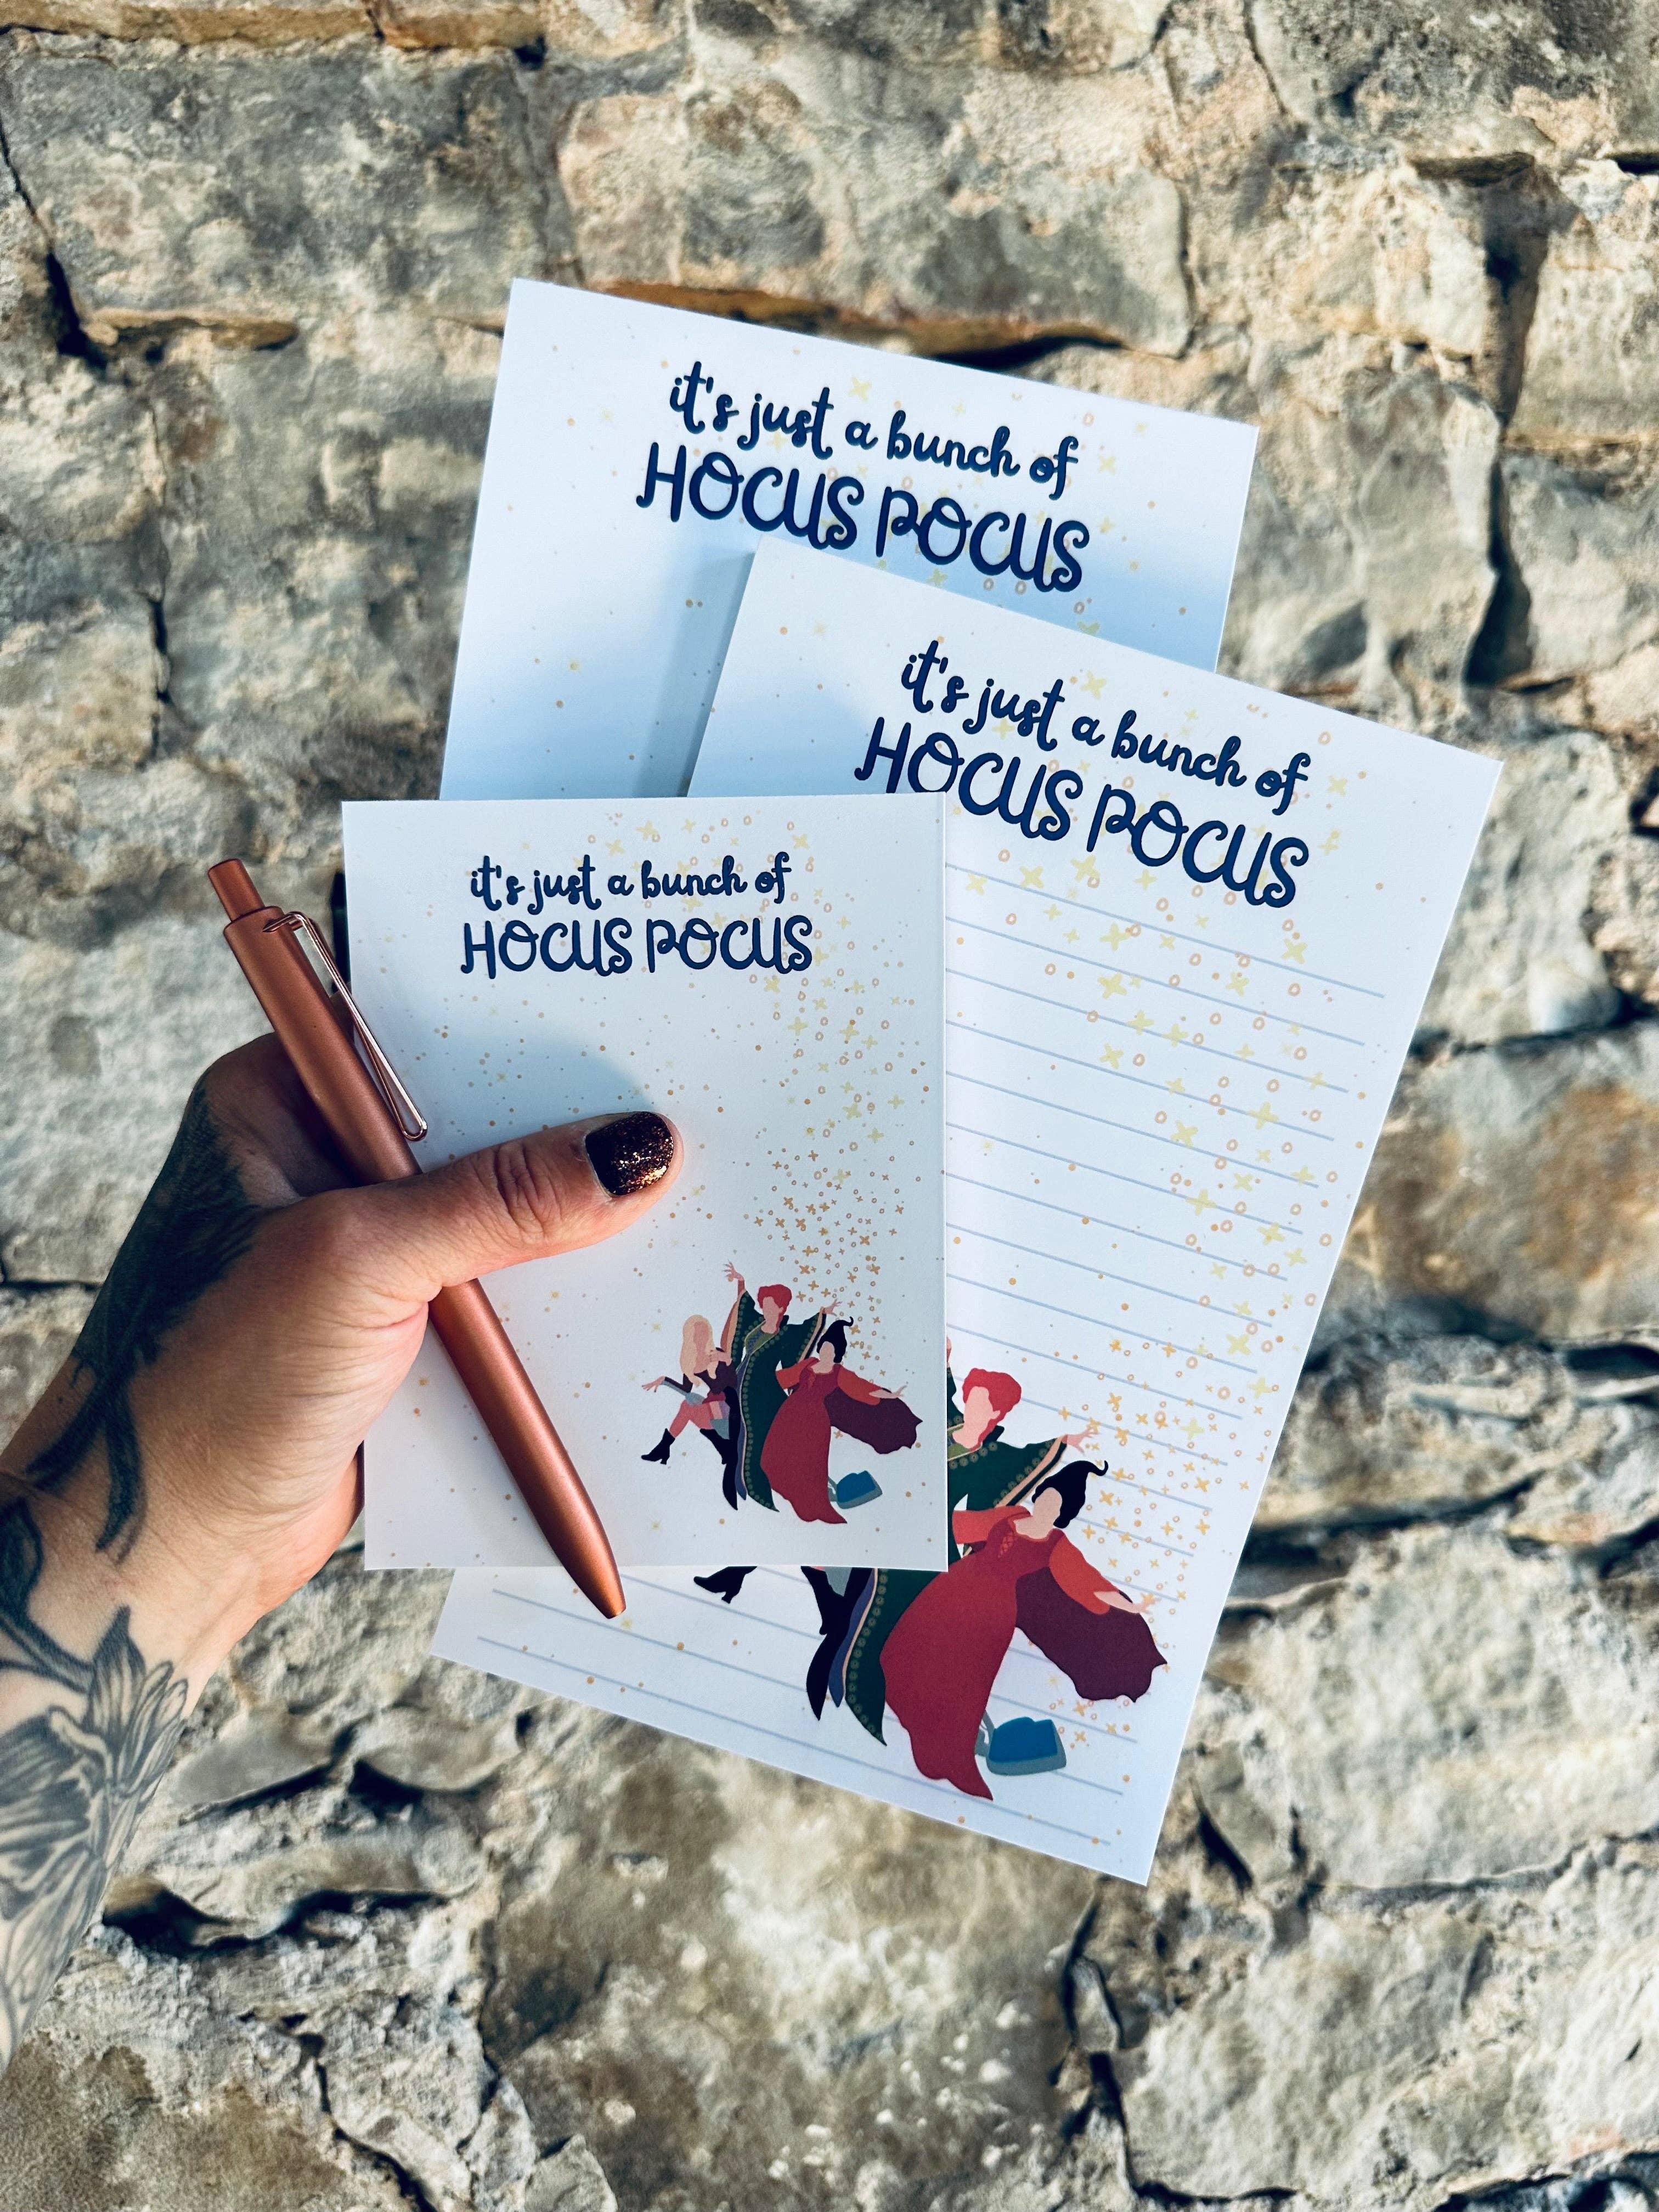 it's just a bunch of
HOCUS POCUS
it's just a bunch of
HOCUS POCUS
it's just a bunch of
HOCUS POCUS